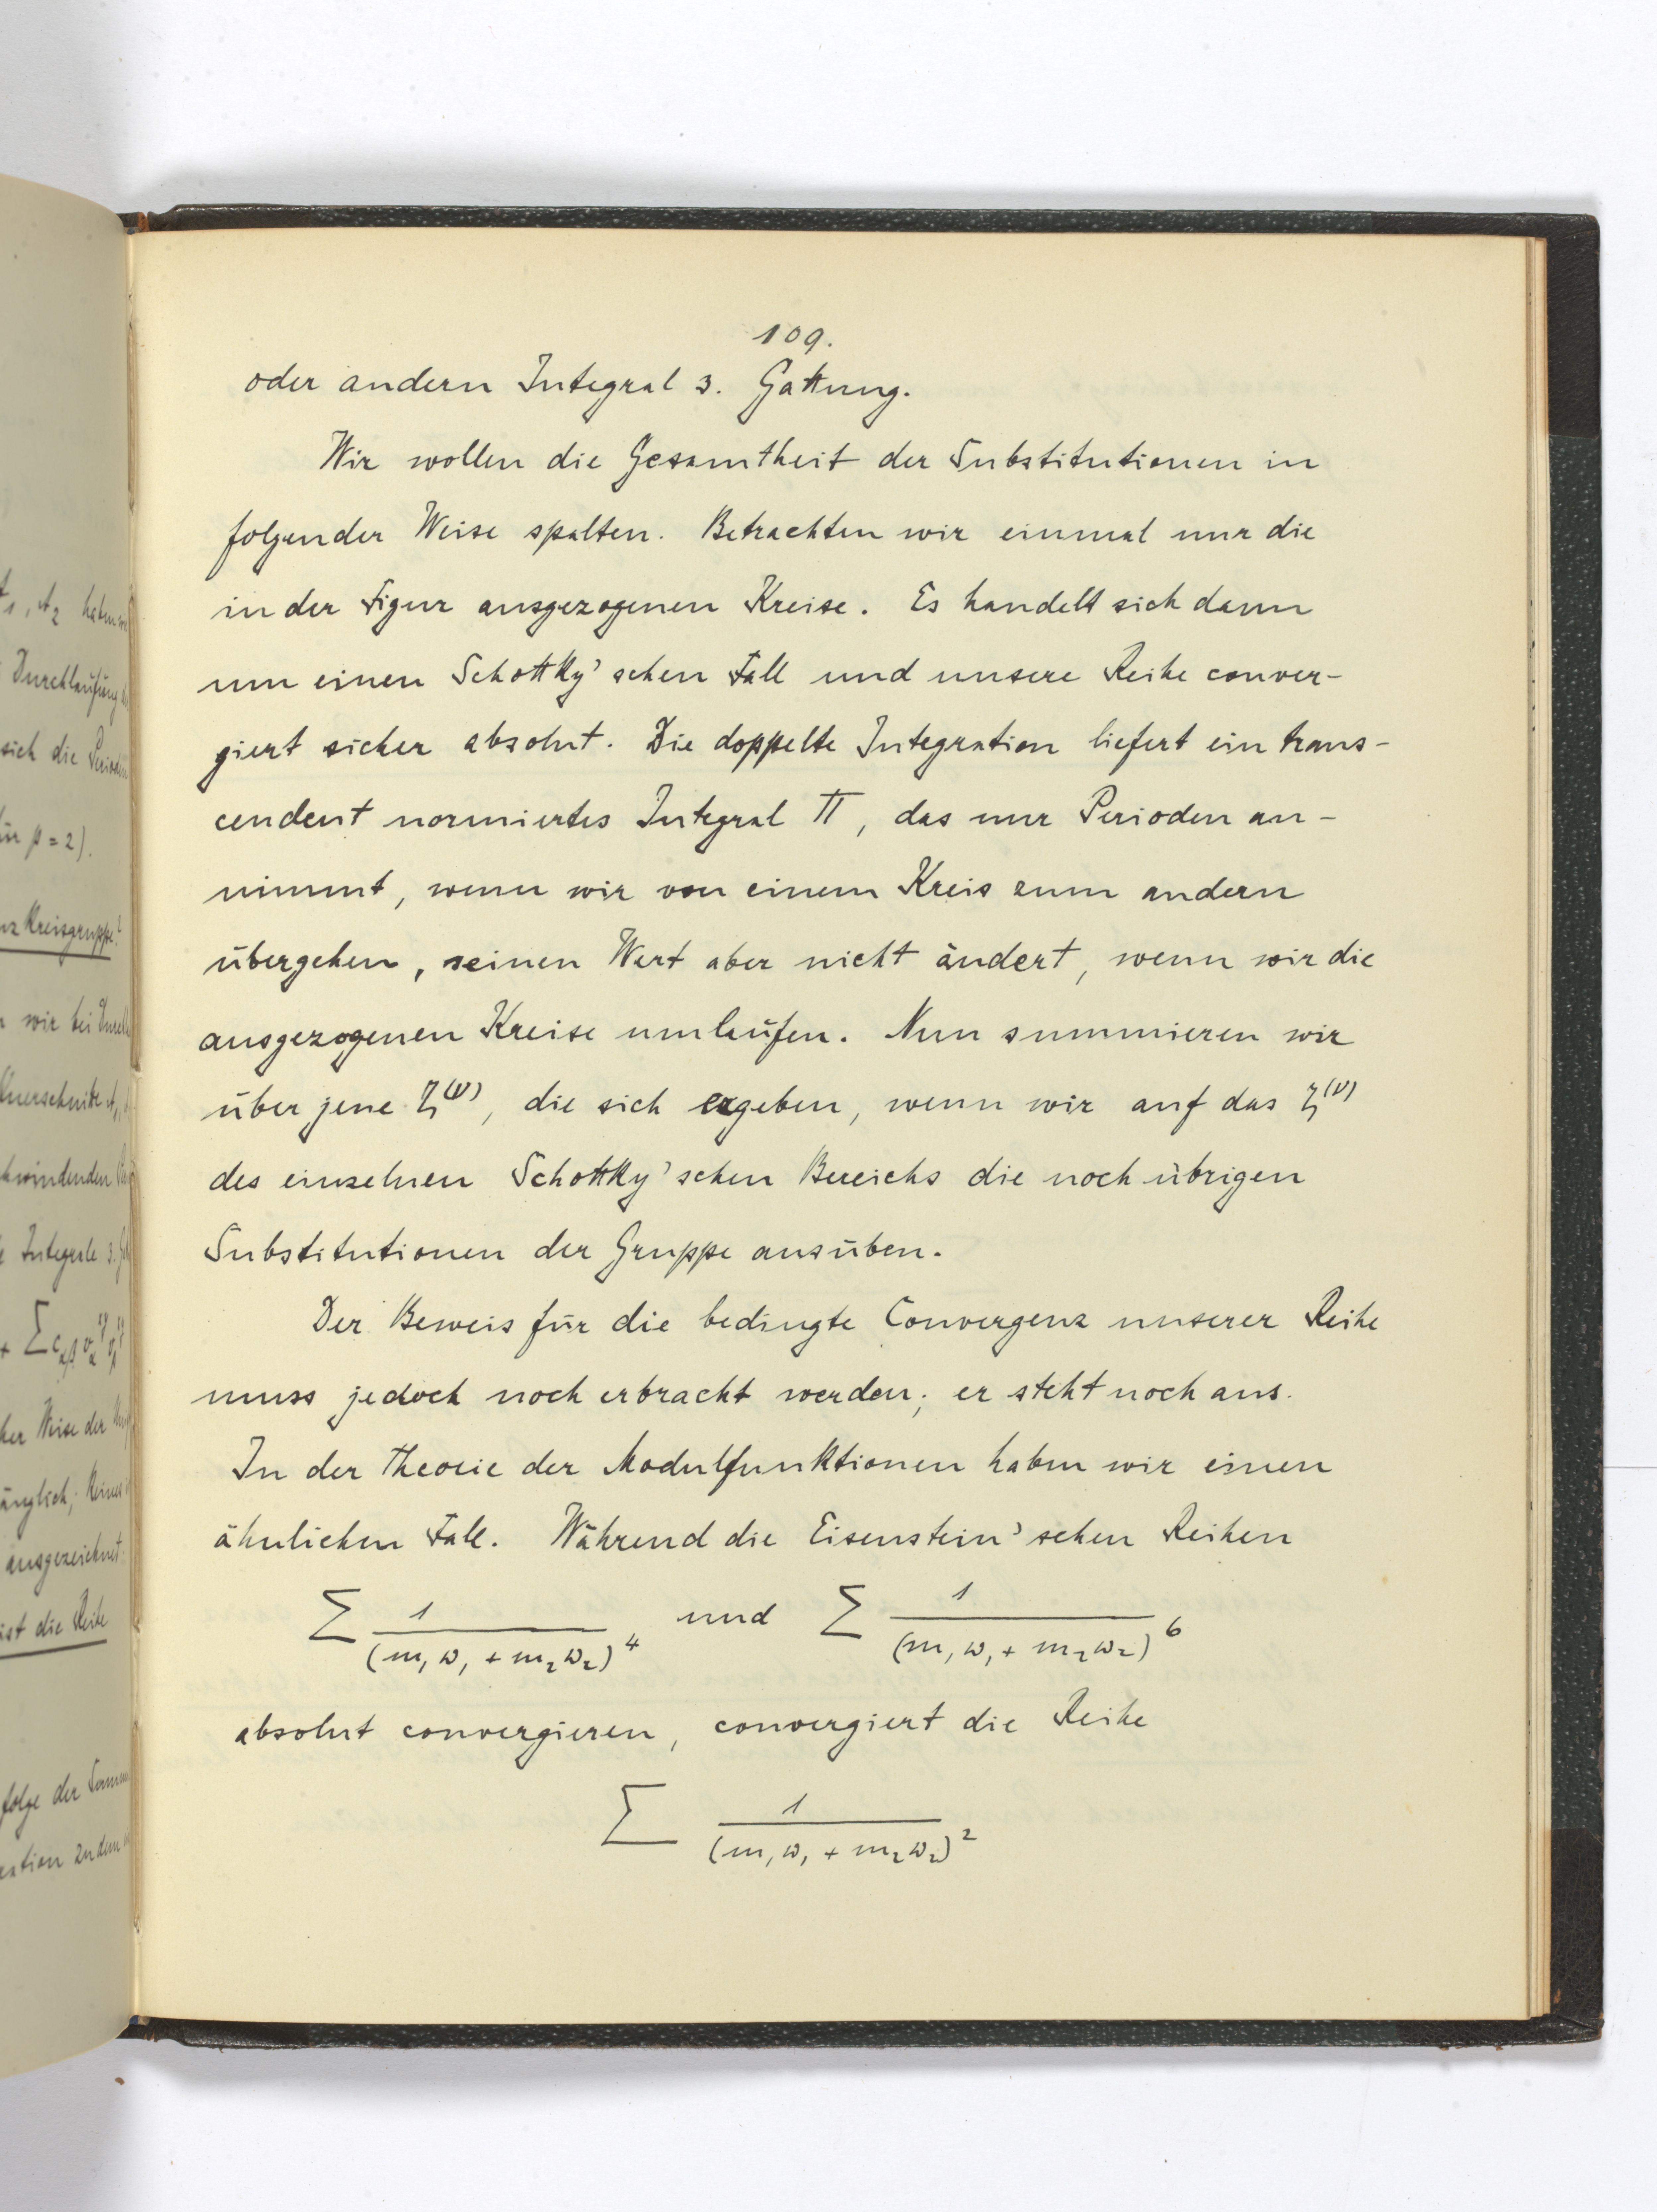 109.
oder andern Integral 3. Gattung.
Wir wollen die Gesamtheit der Substitutionen in
folgender Weise spalten. Betrachten wir einmal nur die
in der Figur ausgezogenen Kreise. Es handelt sich dann
um einen Schottky'schen Fall und unsere Reihe conver-
giert sicher absolut. Die doppelte Integration liefert ein trans-
cendent normiertes Integral Π, das nur Perioden an-
nimmt, wenn wir von einem Kreis zum andern
übergehen, seinen Wert aber nicht ändert, wenn wir die
ausgezogenen Kreise umlaufen. Nun summieren wir
über jene ζ^(ν), die sich ergeben, wenn wir auf das ζ^(ν)
des einzelnen Schottky'schen Bereichs die noch übrigen
Substitutionen der Gruppe ausüben.
Der Beweis für die bedingte Convergenz unserer Reihe
muss jedoch noch erbracht werden; er steht noch aus.
In der Theorie der Modulfunktionen haben wir einen
ähnlichen Fall. Während die Eisenstein'schen Reihen
∑ 1/(m₁ω₁ + m₂ω₂)⁴ und ∑ 1/(m₁ω₁ + m₂ω₂)⁶
absolut convergieren, convergiert die Reihe
∑ 1/(m₁ω₁ + m₂ω₂)²